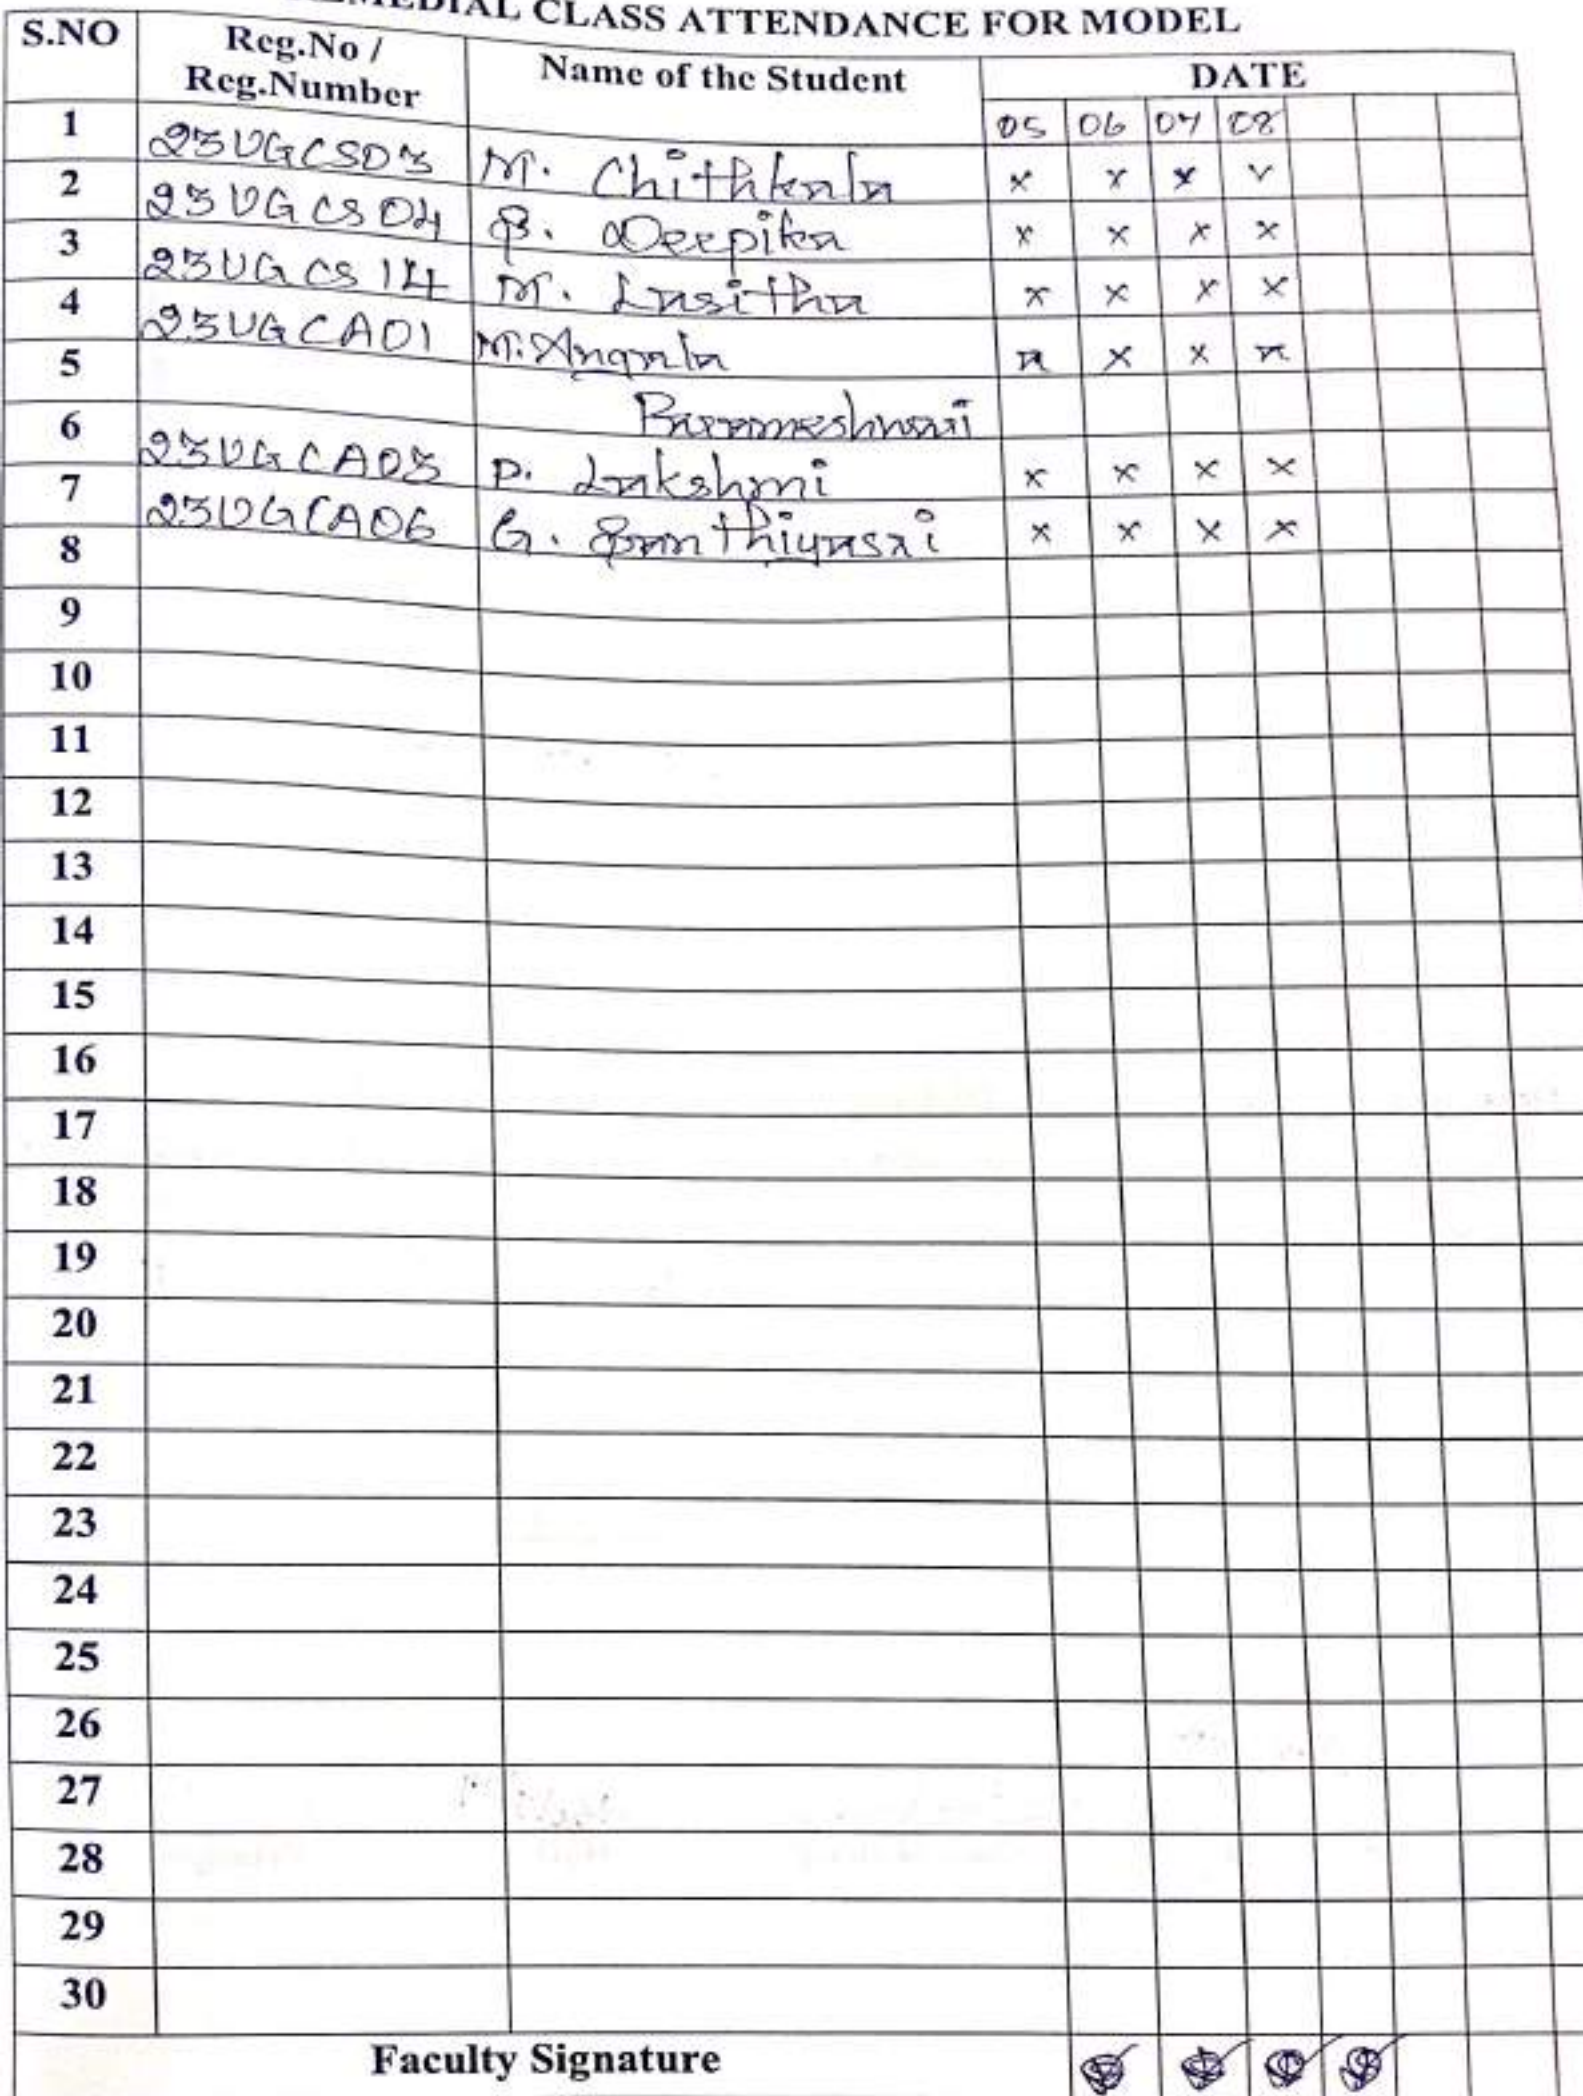 REMEDIAL CLASS ATTENDANCE FOR MODEL
S.NO Reg.No / Reg.Number Name of the Student DATE
05 06 07 08
1 23UGCS03 M. Chithkala x x x x
2 23UGCS04 P. Deepika x x x x
3 23UGCS14 M. Lasitha x x x x
4 23UGCA01 M. Angala a x x a
5 Parameshwari
6 23UGCA03 P. Lakshmi x x x x
7 23UGCA06 G. x x x x
8
9
10
11
12
13
14
15
16
17
18
19
20
21
22
23
24
25
26
27
28
29
30
Faculty Signature